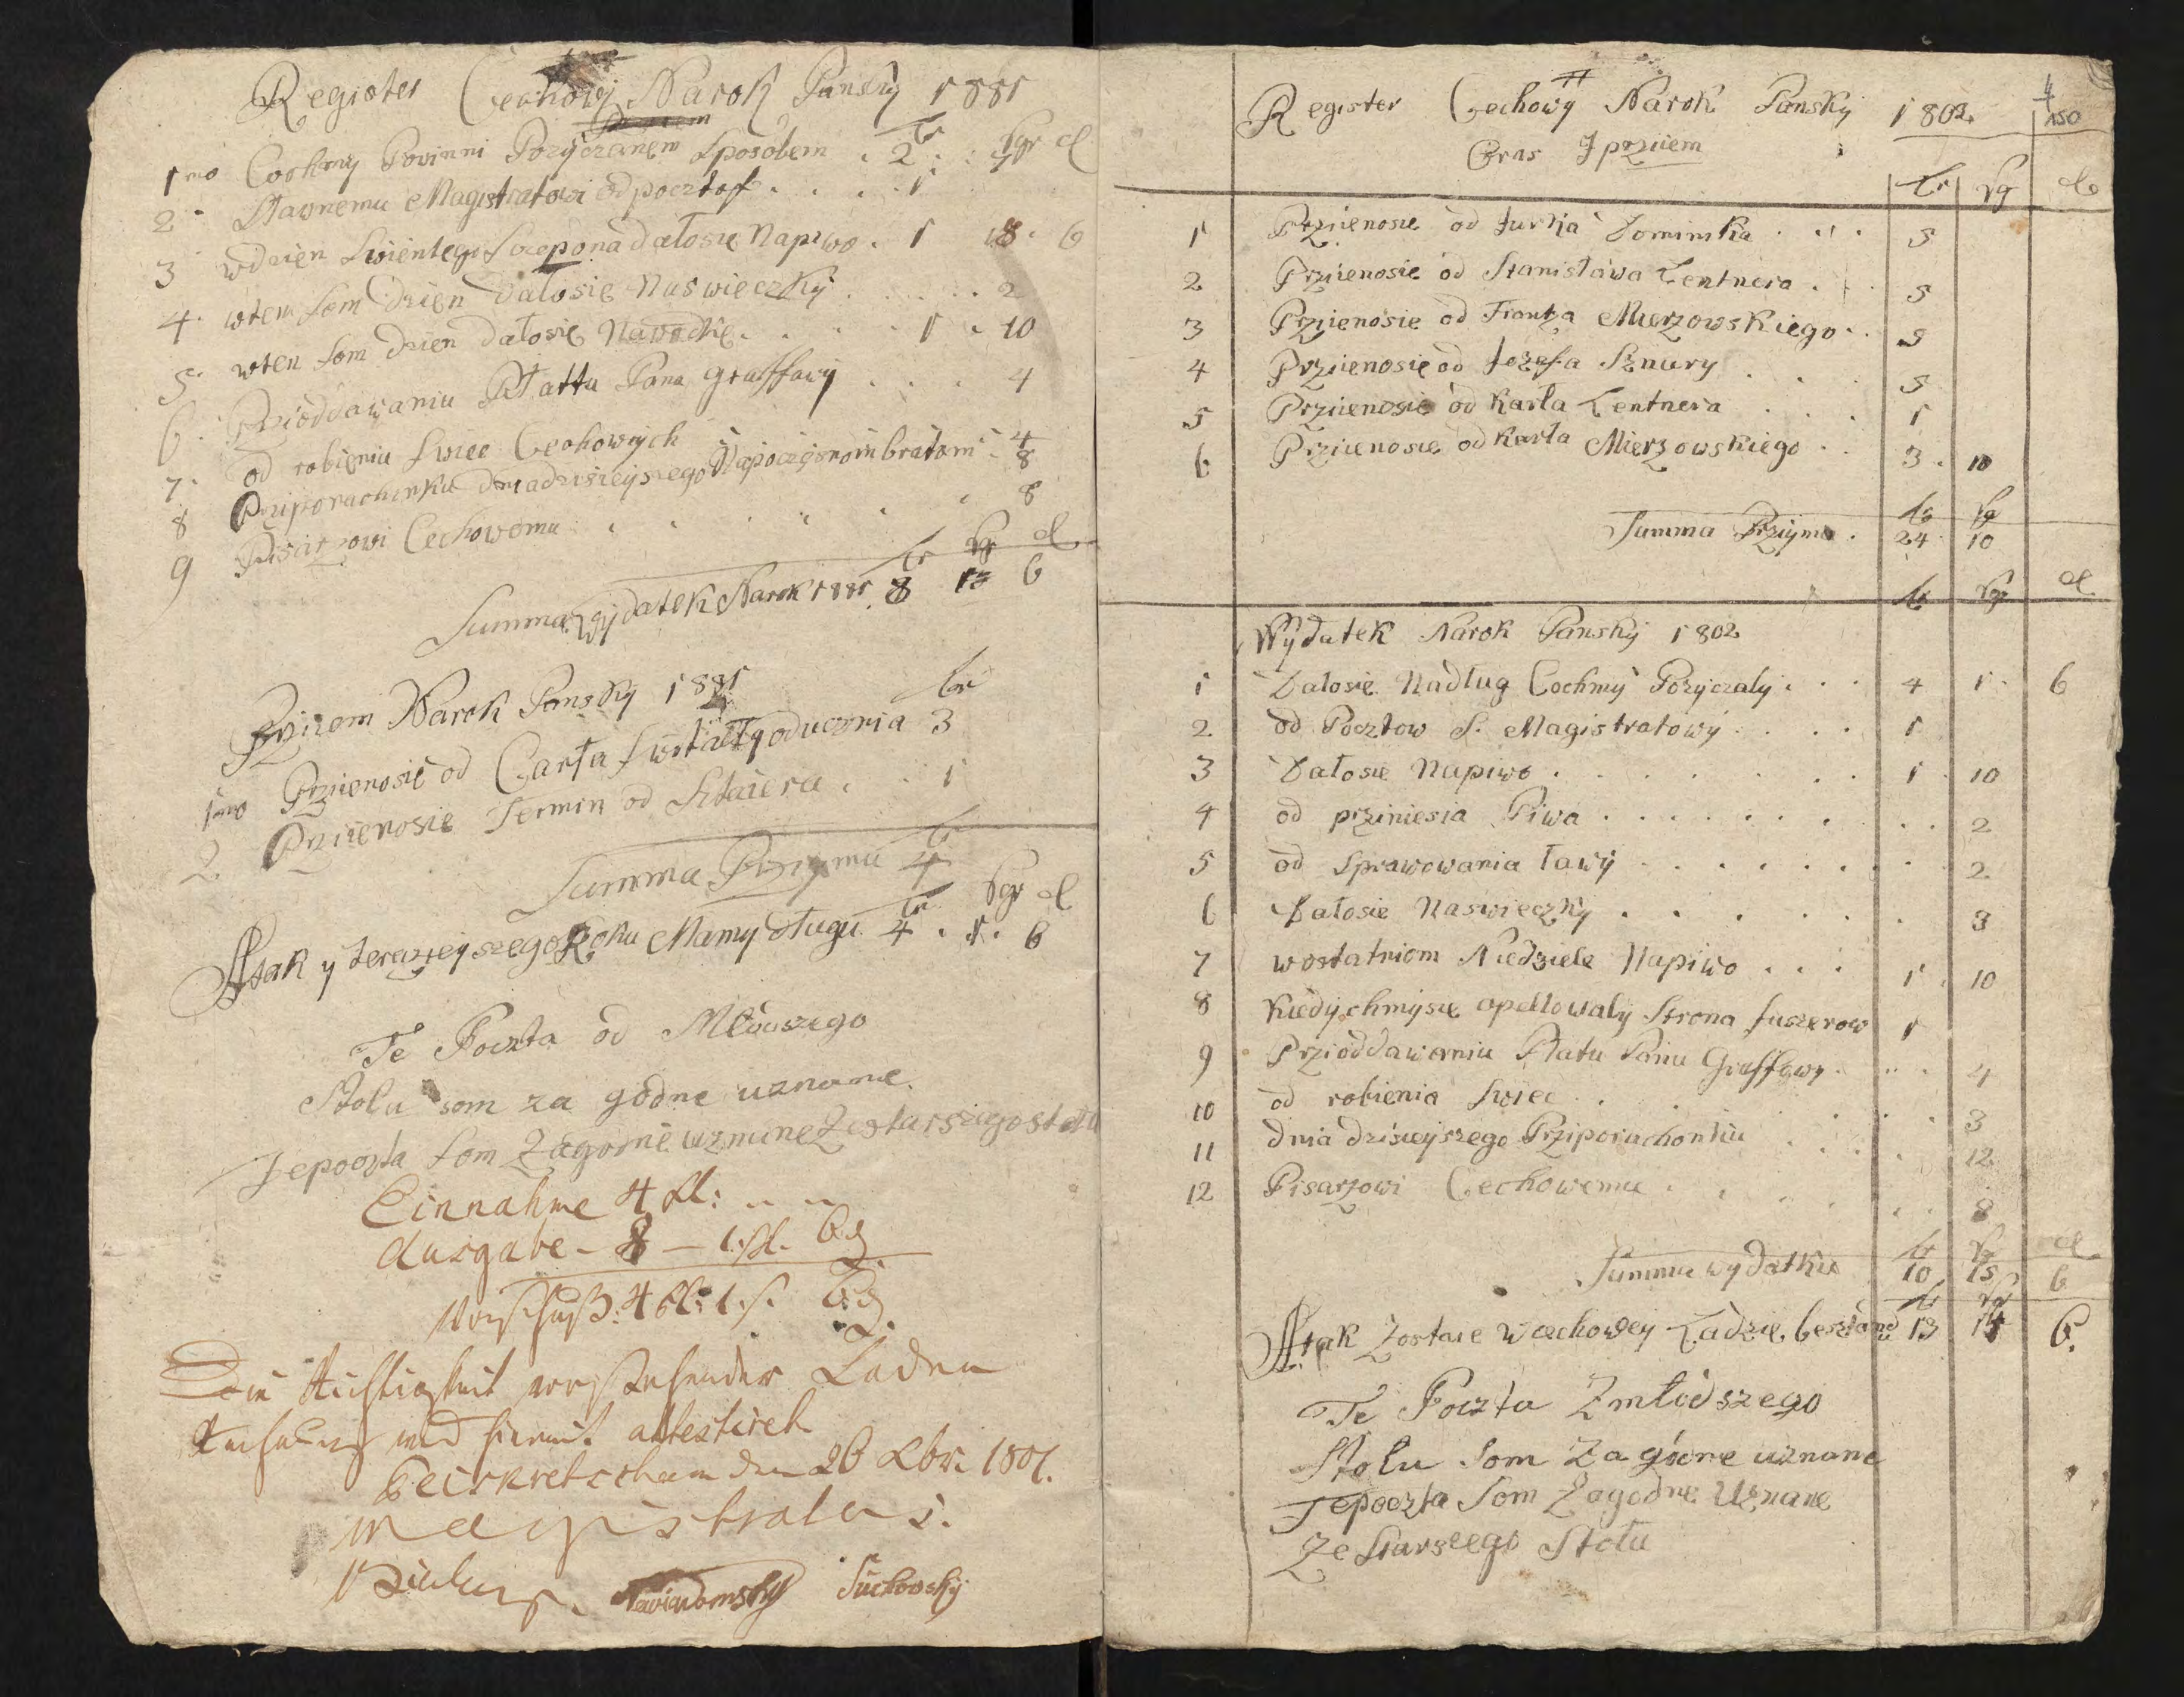 Register Cechowy Narok Panský 1881
tr sgr d
1mo Cochmy Powinni Pozyczanem Sposobem . 2 . :
2 Sławnemu Magistratowi od pocztof . . . . 1
3 wdzien Swientego Sczepona dałosie Napiwo . 1 18 . 6
4. wtem Som dzien dałosie Naswieczký . . . . . 2
5. wten Som dzien dałosie Nawodkie . . . . 1 . 10
6. Przioddawaniu Płattu Pana graffawý . . . . 4
7. od robieniu Swiec Cechowých . 4
8 Prziporachunku dniadzisieýszego Napoczęsnom bratom . 8
9 Pisarzowi Cechowemu . . . . . . 8
tr sgr d
Summa Wydatek Narok 1881 8 13 6
Przizem Narok Panský 1881
tr
1mo Prziienosie od Carła Swotałtÿ oducznia 3
2 Prziienosie Termin od Sztaiera . . 1
tr
Summa Przyjmu 4
tr sgr d
A tak y terazieyszego Roku Mamy długu 4 . 1 . 6
Te Poczta od Młodszego
Stołu som za godne uznane.
Tepoczta Som Zagodne uznane Zestarszegostołu
Einnahme 4 Rl: " "
Ausgabe - 8 - 1 sl. 6 d
Vorschuß: 4 Rl: 1 s. 6 d.
Die Richtigkeit vorstehender Laden
Rechnung wird hiermit attestiret
Peiskretscham den 26 Xbr. 1801.
Magistratus.
Suchowský
4
150
Register Cechowý Narok Panský 1802
Czas Iprziiem
tr sg d
1 Prziienosie od Jurka Dominika . . . 5
2 Prziienosie od Stanisława Lentnera . . 5
3 Prziienosie od Frantza Mierzowskiego . . 5
4 Prziienosie od Jozefa Sznury . . . 5
5 Prziienosie od Karła Lentnera . . . 1
6 Prziienosie od Karła Mierzowskiego . . 3 . 10
tr sg
Summa Przijmu . 24 10
tr sg d
Wÿdatek Narok Panský 1802
1 Dałosie Nadług Cochmý Pozyczalÿ . . . 4 1 . 6
2 od Pocztow S. Magistratowý . . . . 1
3 Dałosie Napiwo . . . . . . . . 1 10
4 od prziniesia Piwa . . . . . . . . . 2
5 od Sprawowania ławý . . . . . . . . 2
6 Dałosie Naswieczký . . . . . . . 3
7 wostatniom Niedziele Napiwo . . . 1 . 10
8 Kiedychmysie apellowalý Strona fuszerow 1
9 Przioddawaniu Płatu Panu Graffowý . . . . 4
10 od robienia Swiec . . . . . . . . 3
11 dnia dzisieyszego Prziporachonkiu . . . . . 12
12 Pisarzowi Cechowemu . . . . . . 8
tr sg d
Summa wydatku 10 15 6
tr sg
A tak Zostaie w cechowey Ladzie besztand 13 14 6.
Te Poczta Zmłodszego
Stołu Som Za godne uznane
Tepoczta Som Zagodne Uznane
Ze Starszego Stołu